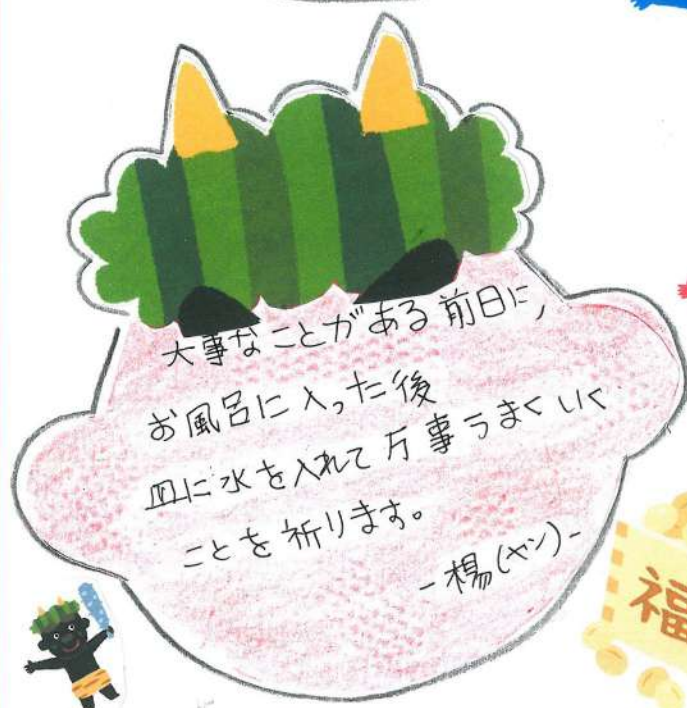 大事なことがある前日に,
お風呂に入った後
皿に水を入れて万事うまくいく
ことを祈ります。
-楊(ヤン)-
福